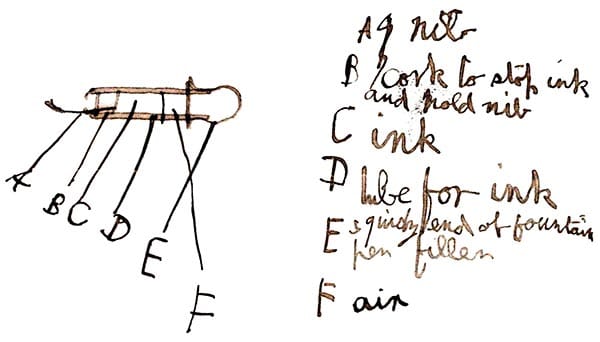 A nib
B cork to stop ink
and hold nib
C ink
D tube for ink
E end of fountain
pen filler
F air
A
B
C
D
E
F